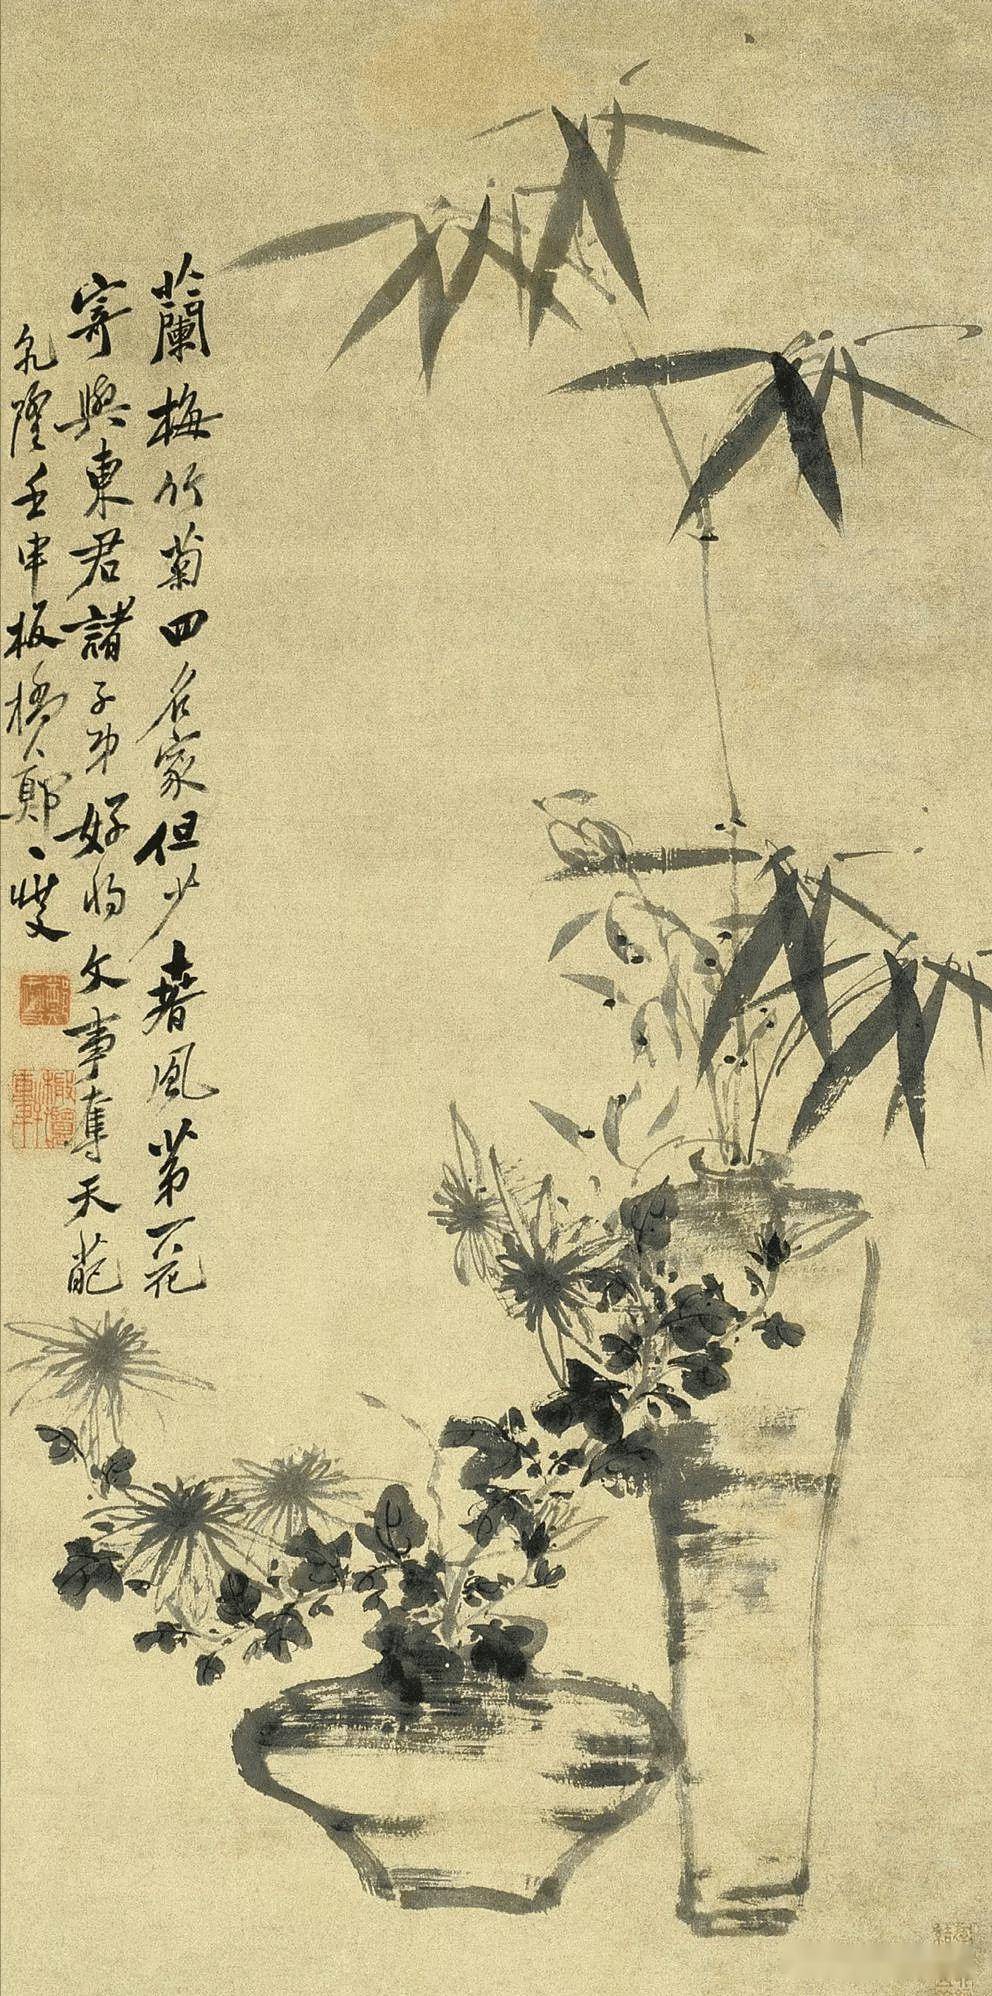 蘭梅竹菊四名家但少春風第一花
寄與東君諸子弟好將文事奪天葩
乾隆壬申板橋鄭燮
橄欖軒